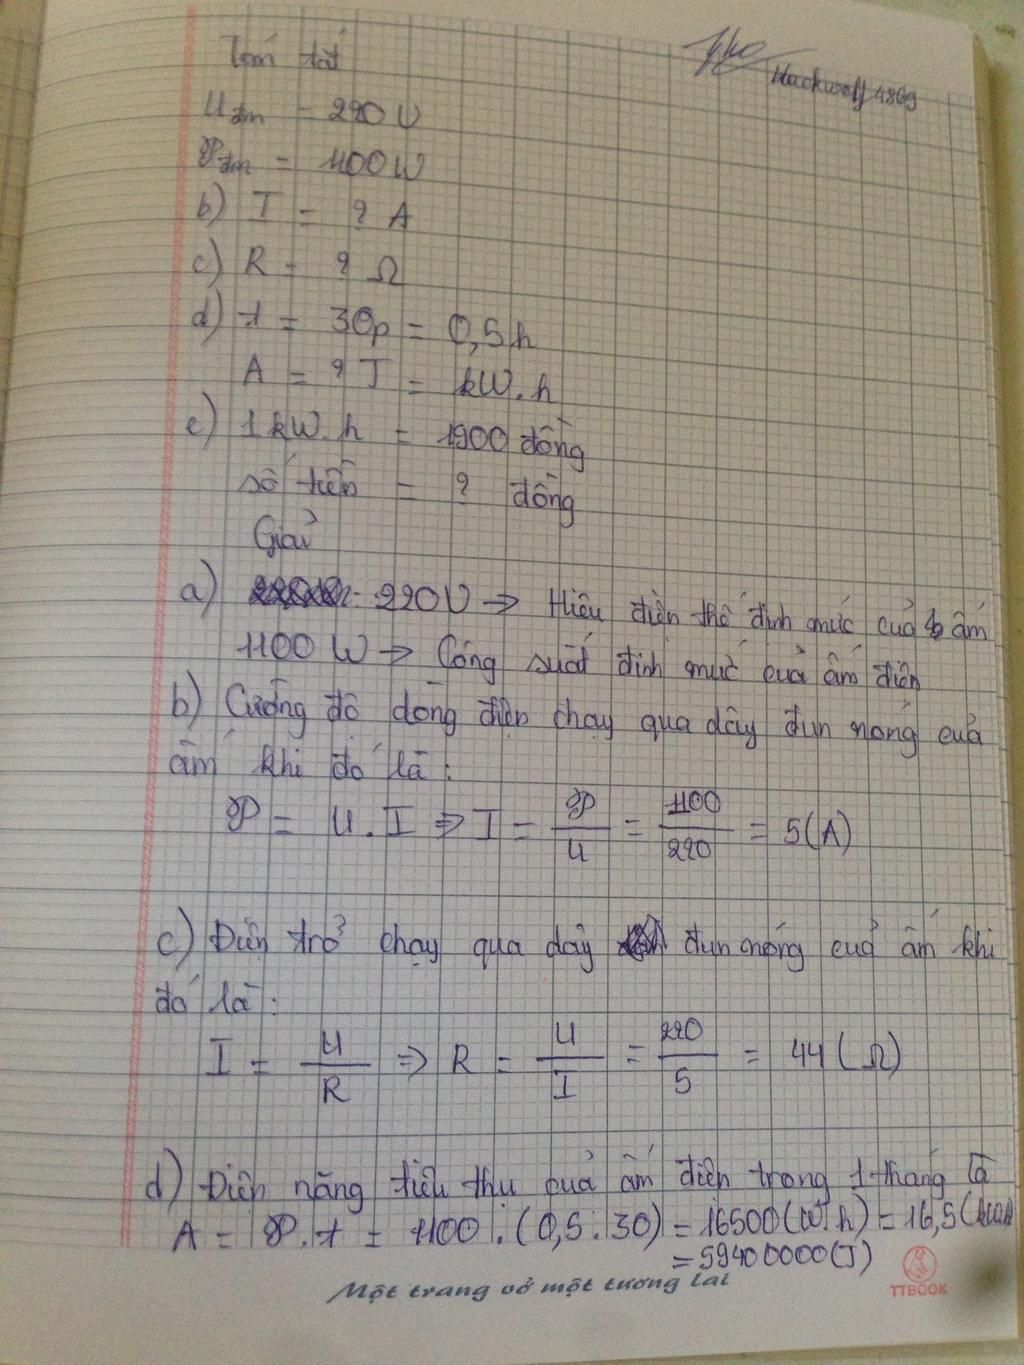 Tóm tắt
Hackwolf4869
Uđm = 220V
Pđm = 1100W
b) I = ? A
c) R = ? Ω
d) t = 30p = 0,5h
A = ? J = kW.h
e) 1kW.h = 1900 đồng
số tiền = ? đồng
Giải
a) 220V → Hiệu điện thế định mức của ấm
1100W → Công suất định mức của ấm điện
b) Cường độ dòng điện chạy qua dây đun nóng của
ấm khi đó là :
P = U . I => I = P/U = 1100/220 = 5(A)
c) Điện trở chạy qua dây đun nóng của ấm khi
đó là :
I = U/R => R = U/I = 220/5 = 44 (Ω)
d) Điện năng tiêu thụ của ấm điện trong 1 tháng là
A = P.t = 1100 . (0,5 . 30) = 16500(W.h) = 16,5(kW.h)
= 59400000(J)
Một trang vở một tương lai
TTBOOK